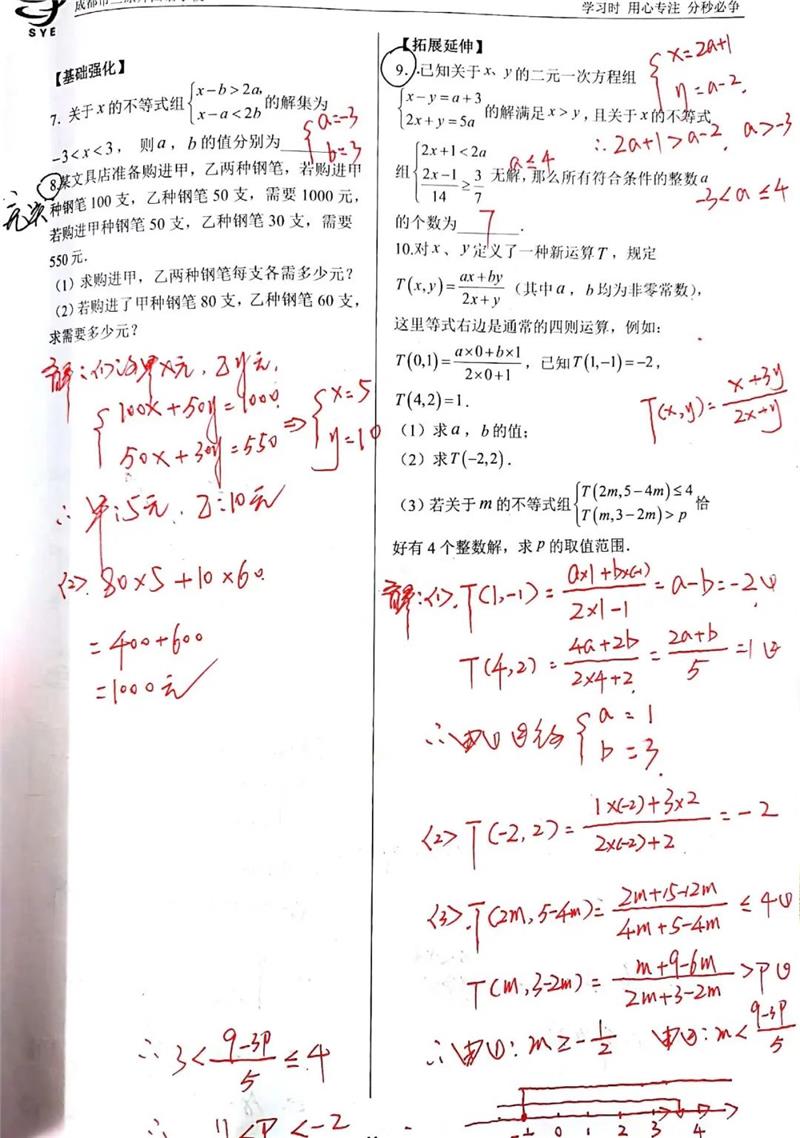 SYE
学习时 用心专注 分秒必争
【基础强化】
7. 关于x的不等式组{x-b>2a, x-a<2b 的解集为
-3<x<3， 则a，b的值分别为______
{a=-3
b=3
8.某文具店准备购进甲，乙两种钢笔，若购进甲
种钢笔100支，乙种钢笔50支，需要1000元，
若购进甲种钢笔50支，乙种钢笔30支，需要
550元.
（1）求购进甲，乙两种钢笔每支各需多少元？
（2）若购进了甲种钢笔80支，乙种钢笔60支，
求需要多少元？
解：(1)设甲x元，乙y元.
{100x+50y=1000
50x+30y=550 ⇒ {x=5
y=10
∴ 甲:5元，乙:10元
(2). 80×5+10×60
=400+600
=1000元
∴ 3<(9-3P)/5≤4
【拓展延伸】
9. 已知关于x、y的二元一次方程组
{x=2a+1
y=a-2.
{x-y=a+3
2x+y=5a 的解满足x>y，且关于x的不等式
∴ 2a+1>a-2, a>-3
组{2x+1<2a
(2x-1)/14≥3/7 无解，那么所有符合条件的整数a
a≤4
-3<a≤4
的个数为 7 .
10.对x、y定义了一种新运算T，规定
T(x,y)=(ax+by)/(2x+y)（其中a，b均为非零常数），
这里等式右边是通常的四则运算，例如：
T(0,1)=(a×0+b×1)/(2×0+1)，已知T(1,-1)=-2，
T(4,2)=1.
T(x,y)=(x+3y)/(2x+y)
（1）求a，b的值；
（2）求T(-2,2).
（3）若关于m的不等式组{T(2m,5-4m)≤4
T(m,3-2m)>p 恰
好有4个整数解，求p的取值范围.
解：(1). T(1,-1)=(a×1+b×(-1))/(2×1-1)=a-b=-2①
T(4,2)=(4a+2b)/(2×4+2)=(2a+b)/5=1②
∴由①②得{a=1
b=3.
(2) T(-2,2)=(1×(-2)+3×2)/(2×(-2)+2)=-2
(3). T(2m,5-4m)=(2m+15-12m)/(4m+5-4m)≤4①
T(m,3-2m)=(m+9-6m)/(2m+3-2m)>P②
∴由①:m≥-1/2 由②:m<(9-3P)/5
0 1 2 3 4